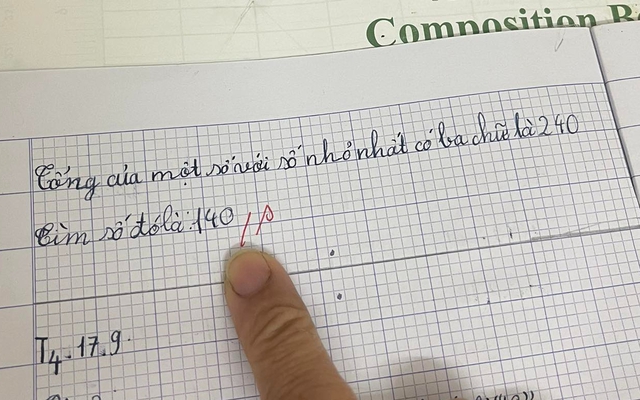 Composition B
Tổng của một số với số nhỏ nhất có ba chữ là 240
Tìm số đó là: 140
T4. 17. 9.